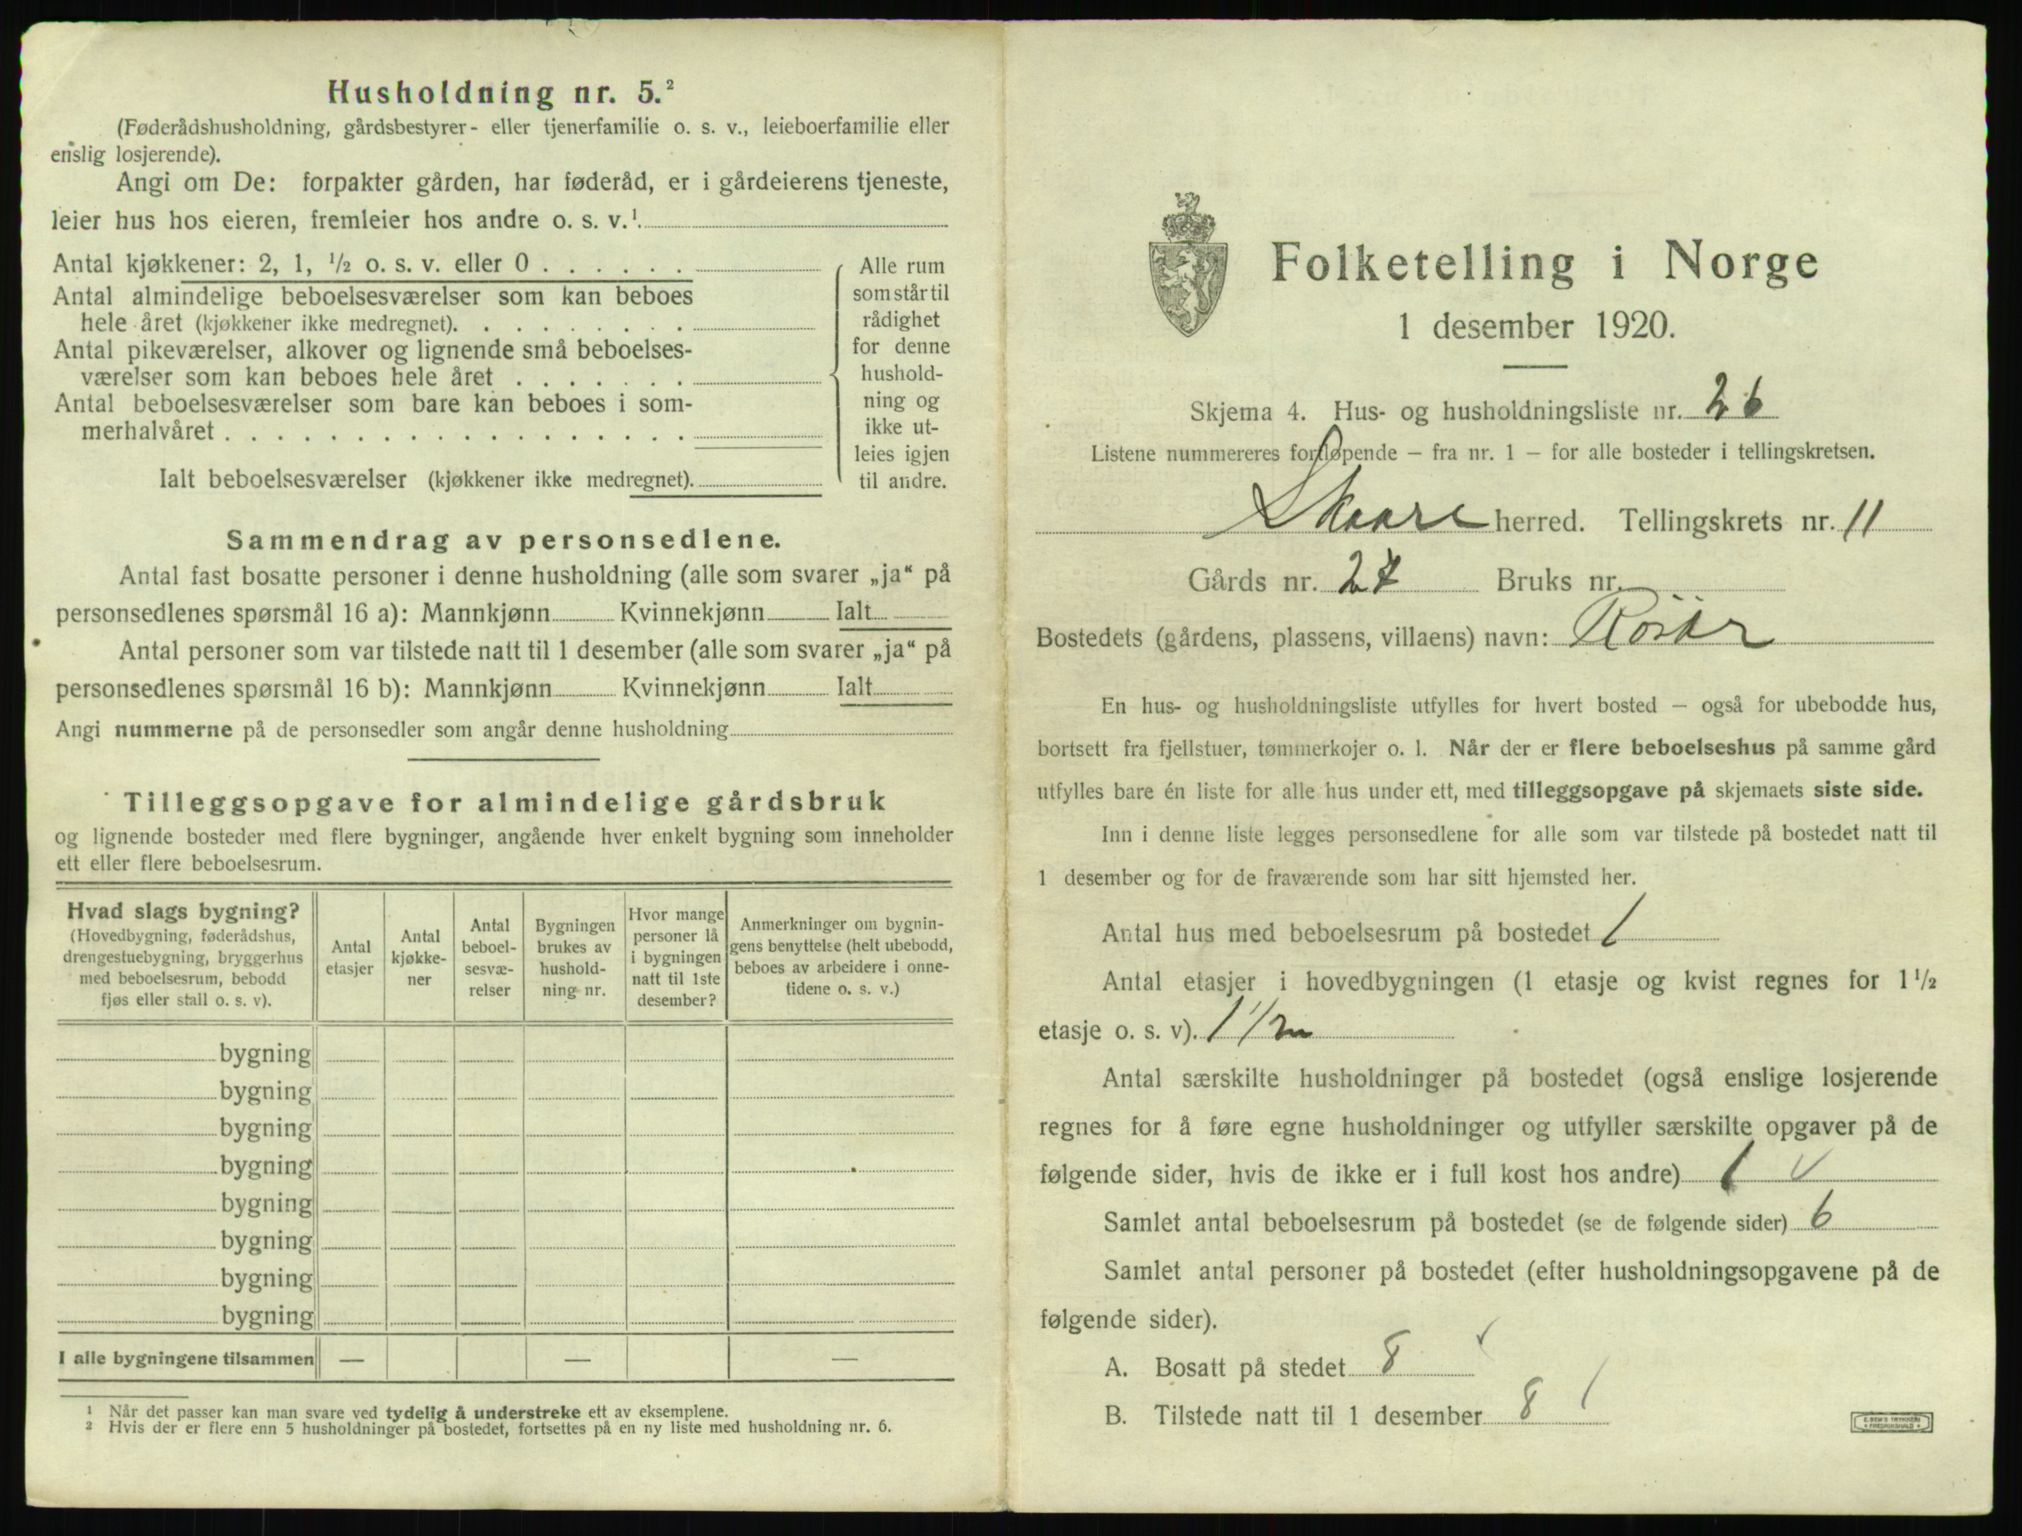 Husholdning nr. 5.²
(Føderådshusholdning, gårdsbestyrer- eller tjenerfamilie o. s. v., leieboerfamilie eller
enslig losjerende).
Angi om De: forpakter gården, har føderåd, er i gårdeierens tjeneste,
leier hus hos eieren, fremleier hos andre o. s. v.¹
Antal kjøkkener: 2, 1, ½ o. s. v. eller 0
Antal almindelige beboelsesværelser som kan beboes
hele året (kjøkkener ikke medregnet).
Antal pikeværelser, alkover og lignende små beboelses-
værelser som kan beboes hele året
Antal beboelsesværelser som bare kan beboes i som-
merhalvåret
Ialt beboelsesværelser (kjøkkener ikke medregnet).
Alle rum
som står til
rådighet
for denne
hushold-
ning og
ikke ut-
leies igjen
til andre.
Sammendrag av personsedlene.
Antal fast bosatte personer i denne husholdning (alle som svarer „ja“ på
personsedlenes spørsmål 16 a): Mannkjønn Kvinnekjønn Ialt
Antal personer som var tilstede natt til 1 desember (alle som svarer „ja“ på
personsedlenes spørsmål 16 b): Mannkjønn Kvinnekjønn Ialt
Angi nummerne på de personsedler som angår denne husholdning
Tilleggsopgave for almindelige gårdsbruk
og lignende bosteder med flere bygninger, angående hver enkelt bygning som inneholder
ett eller flere beboelsesrum.
Hvad slags bygning?
(Hovedbygning, føderådshus,
drengestuebygning, bryggerhus
med beboelsesrum, bebodd
fjøs eller stall o. s. v).
Antal
etasjer
Antal
kjøkke-
ner
Antal
beboel-
sesvæ-
relser
Bygningen
brukes av
hushold-
ning nr.
Hvor mange
personer lå
i bygningen
natt til 1ste
desember?
Anmerkninger om bygnin-
gens benyttelse (helt ubebodd,
beboes av arbeidere i onne-
tidene o. s. v.)
bygning
bygning
bygning
bygning
bygning
bygning
bygning
bygning
I alle bygningene tilsammen — — —
¹ Når det passer kan man svare ved tydelig å understreke ett av eksemplene.
² Hvis der er flere enn 5 husholdninger på bostedet, fortsettes på en ny liste med husholdning nr. 6.
Folketelling i Norge
1 desember 1920.
Skjema 4. Hus- og husholdningsliste nr. 26
Listene nummereres fortløpende — fra nr. 1 — for alle bosteder i tellingskretsen.
Skaare herred. Tellingskrets nr. 11
Gårds nr. 27 Bruks nr.
Bostedets (gårdens, plassens, villaens) navn:
En hus- og husholdningsliste utfylles for hvert bosted — også for ubebodde hus,
bortsett fra fjellstuer, tømmerkojer o. l. Når der er flere beboelseshus på samme gård
utfylles bare én liste for alle hus under ett, med tilleggsopgave på skjemaets siste side.
Inn i denne liste legges personsedlene for alle som var tilstede på bostedet natt til
1 desember og for de fraværende som har sitt hjemsted her.
Antal hus med beboelsesrum på bostedet 1
Antal etasjer i hovedbygningen (1 etasje og kvist regnes for 1 ½
etasje o. s. v). 1 1/2
Antal særskilte husholdninger på bostedet (også enslige losjerende
regnes for å føre egne husholdninger og utfyller særskilte opgaver på de
følgende sider, hvis de ikke er i full kost hos andre) 1
Samlet antal beboelsesrum på bostedet (se de følgende sider) 6
Samlet antal personer på bostedet (efter husholdningsopgavene på de
følgende sider).
A. Bosatt på stedet 8
B. Tilstede natt til 1 desember 8
E. SEM'S TRYKKERI
FREDRIKSHALD